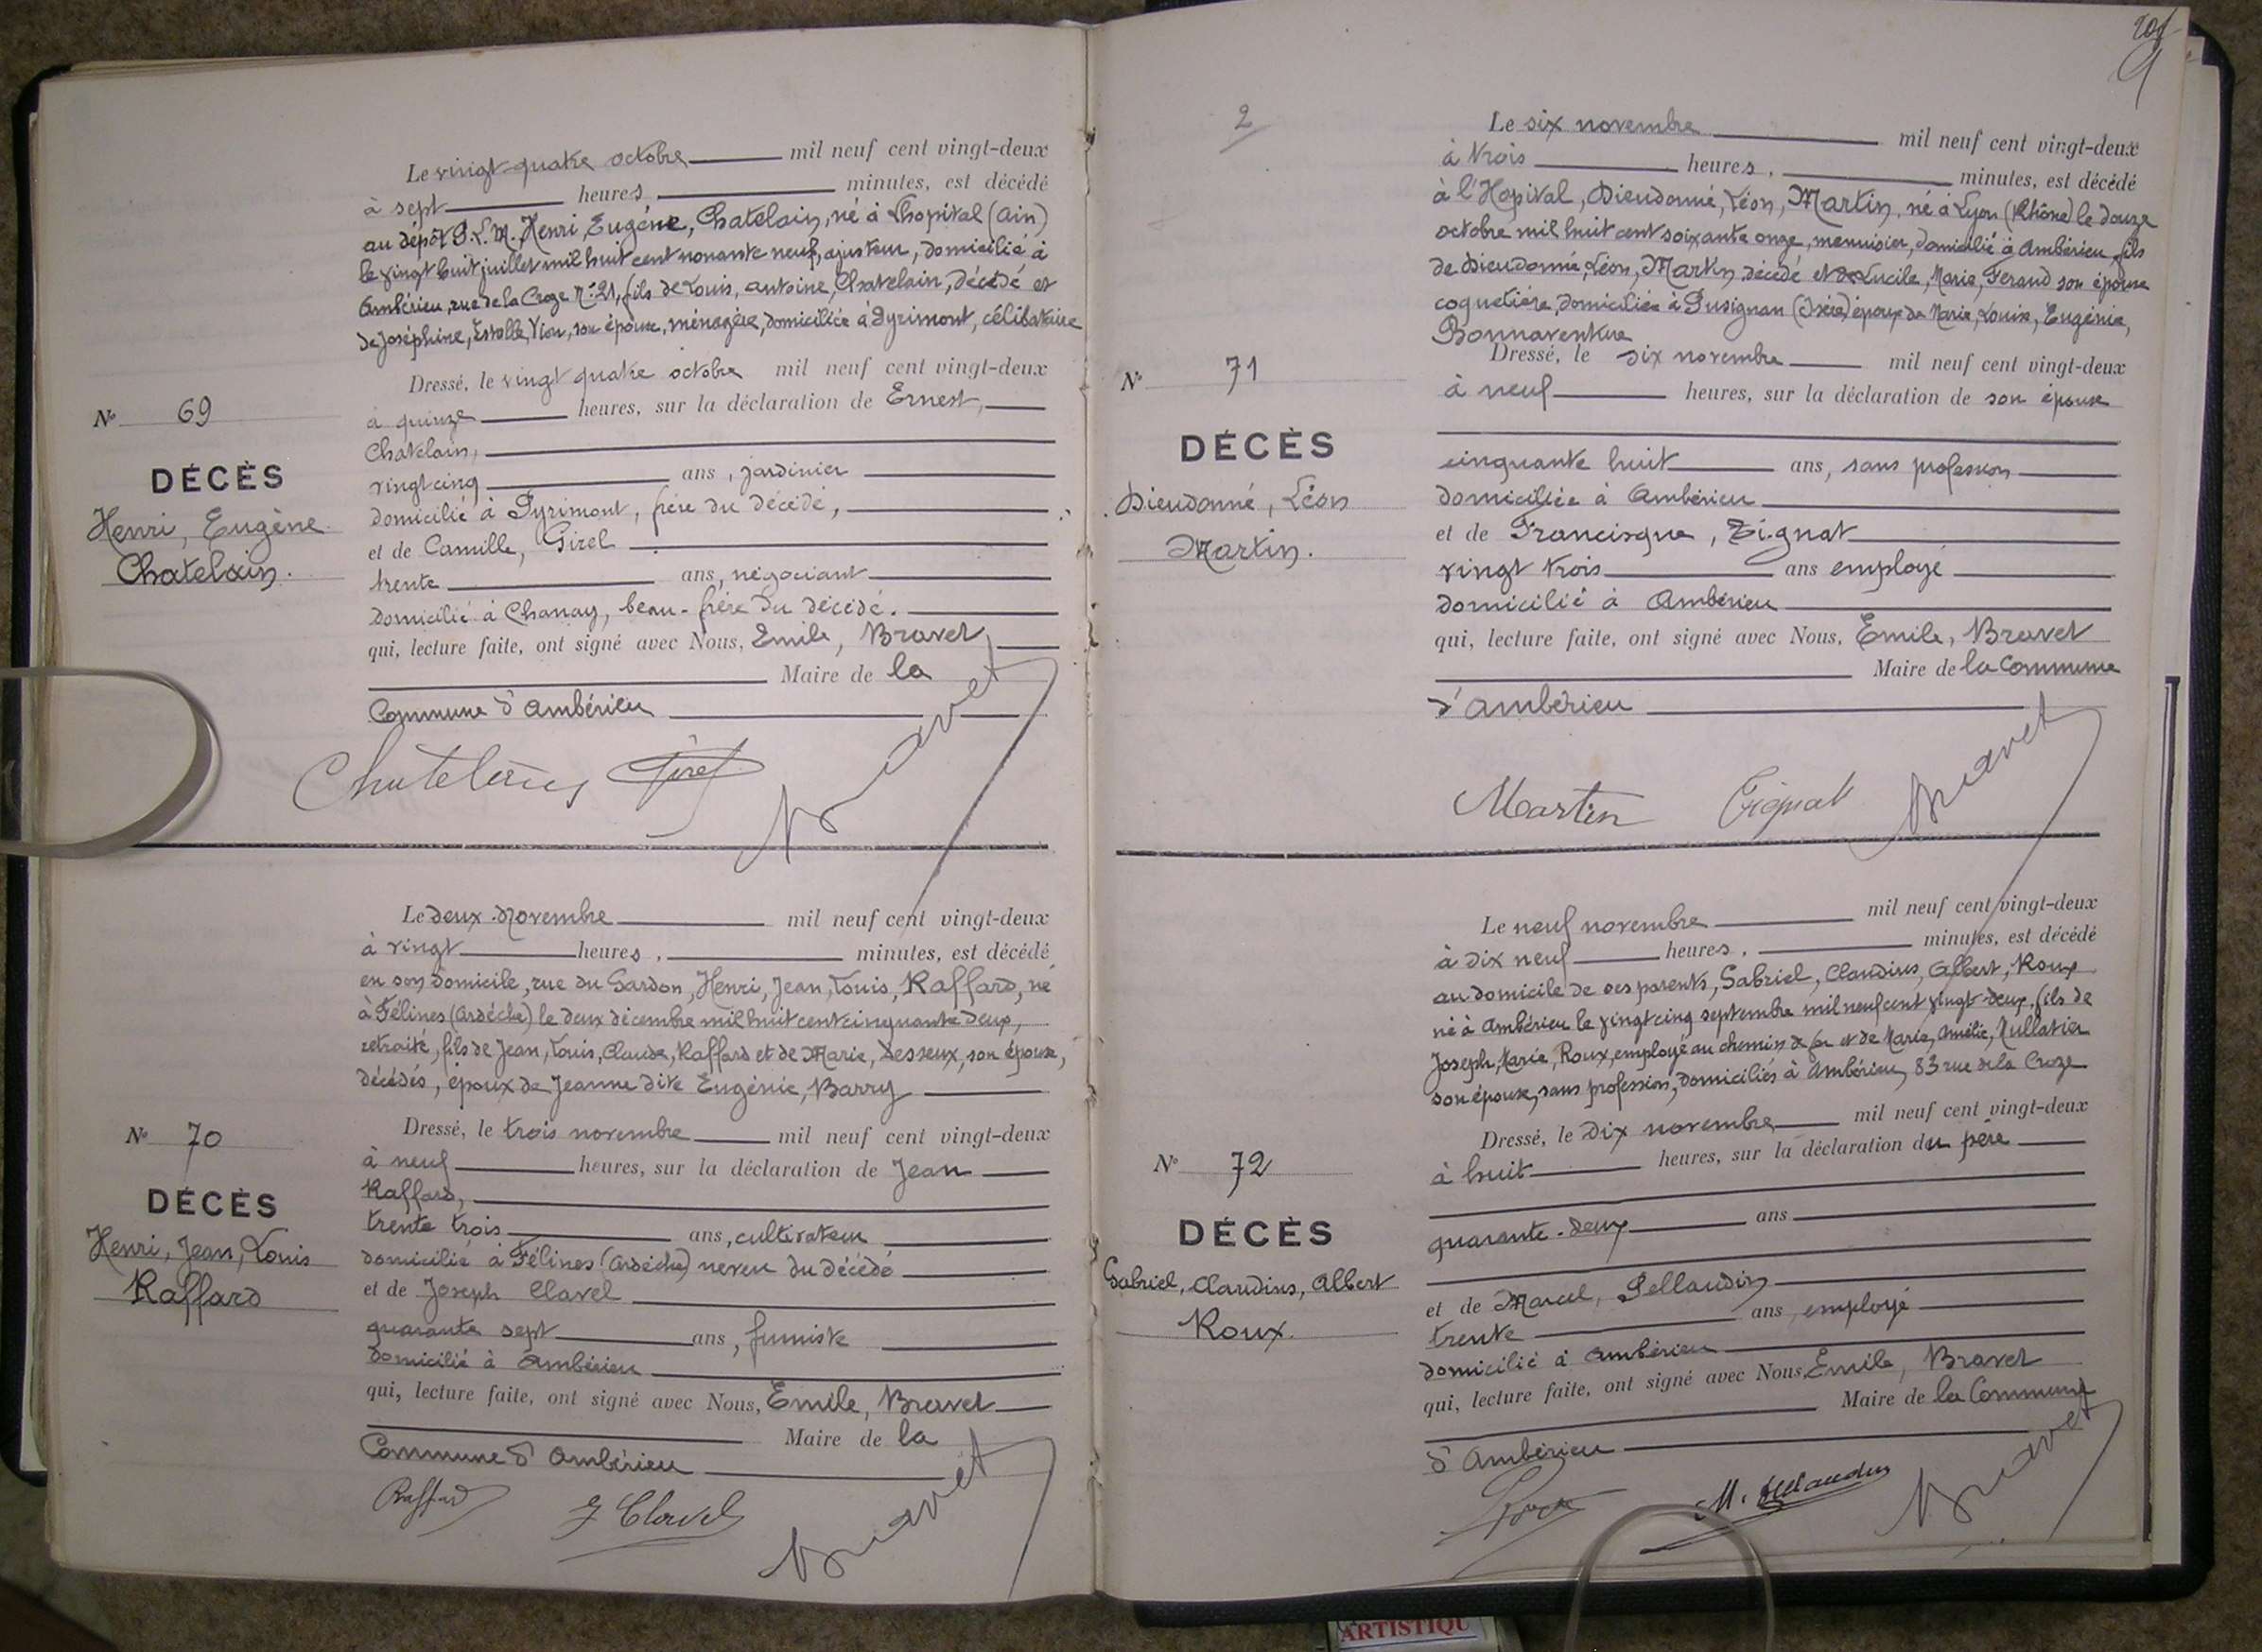 Le vingt quatre octobre mil neuf cent vingt-deux
à sept heures, minutes, est décédé
au dépôt P. L. M. Henri, Eugène, Chatelain, né à Lhopital (Ain)
le vingt huit juillet mil huit cent nonante neuf, ajusteur, domicilié à
Ambérieu, rue de la Croze N° 21, fils de Louis, Antoine, Chatelain, décédé et
de Joséphine, Estelle, Vion, son épouse, ménagère, domiciliée à Pyrimont, célibataire
Dressé, le vingt quatre octobre mil neuf cent vingt-deux
à quinze heures, sur la déclaration de Ernest,
Chatelain,
vingt cinq ans, jardinier
domicilié à Pyrimont, frère du décédé,
et de Camille, Girel
trente ans, négociant
domicilié à Chanay, beau-frère du décédé.
qui, lecture faite, ont signé avec Nous, Emile, Bravet
Maire de la
Commune d'Ambérieu
N° 69
DÉCÈS
Henri, Eugène
Chatelain.
Chatelain Girel Bravet
Le deux novembre mil neuf cent vingt-deux
à vingt heures, minutes, est décédé
en son domicile, rue du Gardon, Henri, Jean, Louis, Raffard, né
à Félines (Ardèche) le deux décembre mil huit cent cinquante deux,
retraité, fils de Jean, Louis, Claude, Raffard et de Marie, Desseux, son épouse,
décédés, époux de Jeanne dite Eugénie, Barry
Dressé, le trois novembre mil neuf cent vingt-deux
à neuf heures, sur la déclaration de Jean
Raffard,
trente trois ans, cultivateur
domicilié à Félines (Ardèche) neveu du décédé
et de Joseph Clavel
quarante sept ans, fumiste
domicilié à Ambérieu
qui, lecture faite, ont signé avec Nous, Emile, Bravet
Maire de la
Commune d'Ambérieu
N° 70
DÉCÈS
Henri, Jean, Louis
Raffard
Raffard J Clavel Bravet
2
Le six novembre mil neuf cent vingt-deux
à trois heures, minutes, est décédé
à l'Hopital, Dieudonné, Léon, Martin, né à Lyon (Rhône) le douze
octobre mil huit cent soixante onze, menuisier, domicilié à Ambérieu, fils
de Dieudonné, Léon, Martin, décédé et de Lucile, Marie, Feraud son épouse
coquetière domiciliée à Pusignan (Isère) époux de Marie, Louise, Eugénie,
Bonnaventure
Dressé, le six novembre mil neuf cent vingt-deux
à neuf heures, sur la déclaration de son épouse
cinquante huit ans, sans profession
domiciliée à Ambérieu
et de Francisque, Tignat
vingt trois ans employé
domicilié à Ambérieu
qui, lecture faite, ont signé avec Nous, Emile, Bravet
Maire de la Commune
d'Ambérieu
N° 71
DÉCÈS
Dieudonné, Léon
Martin.
Martin Tignat Bravet
Le neuf novembre mil neuf cent vingt-deux
à dix neuf heures, minutes, est décédé
au domicile de ses parents, Gabriel, Claudius, Albert, Roux
né à Ambérieu le vingt cinq septembre mil neuf cent vingt-deux, fils de
Joseph, Marie, Roux, employé au chemin de fer et de Marie, Amélie, Mullatier
son épouse, sans profession, domiciliés à Ambérieu, 83 rue de la Croze
Dressé, le dix novembre mil neuf cent vingt-deux
à huit heures, sur la déclaration du père
quarante-deux ans
et de Marcel, Pellaudin
trente ans, employé
domicilié à Ambérieu
qui, lecture faite, ont signé avec Nous Emile, Bravet
Maire de la Commune
d'Ambérieu
N° 72
DÉCÈS
Gabriel, Claudius, Albert
Roux.
Roux M. Pellaudin Bravet
ARTISTIQU